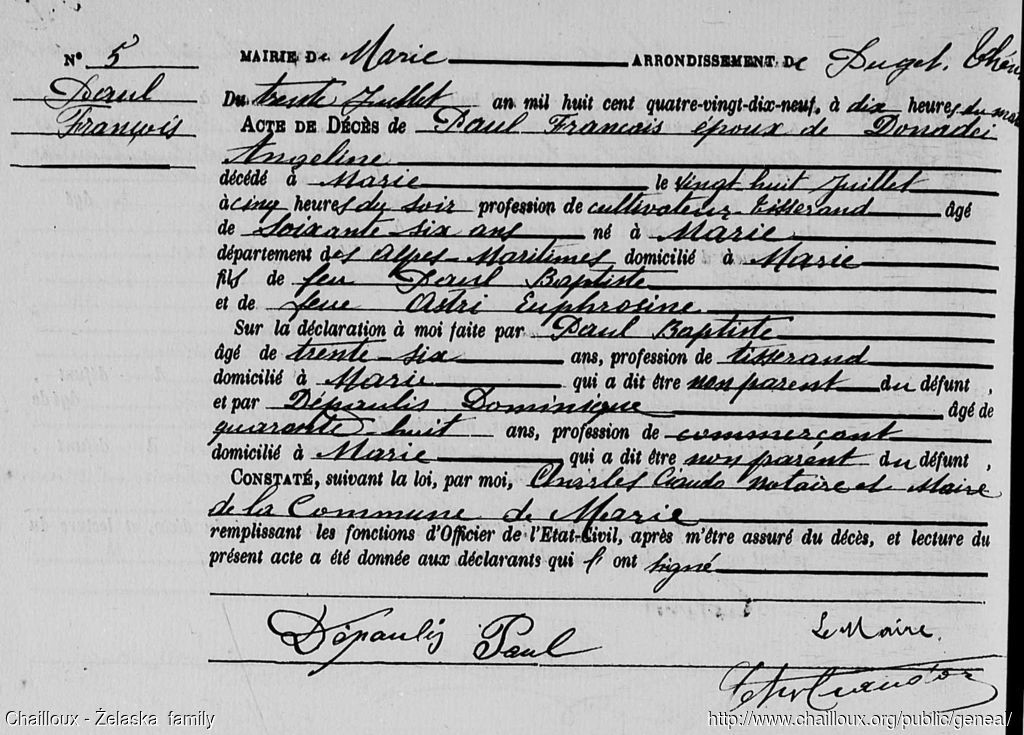 N° 5
Paul
François
MAIRIE De Marie ARRONDISSEMENT De Puget. Théni
Du trente Juillet an mil huit cent quatre-vingt-dix-neuf, à dix heures du matin
ACTE DE DÉCÈS de Paul François époux de Donadei
Angeline
décédé à Marie le vingt huit Juillet
à cinq heures du soir profession de cultivateur-tisserand âgé
de soixante-six ans né à Marie
département des Alpes Maritimes domicilié à Marie
fils de feu Paul Baptiste
et de feue Astri Euphrosine
Sur la déclaration à moi faite par Paul Baptiste
âgé de trente-six ans, profession de tisserand
domicilié à Marie qui a dit être non parent du défunt,
et par Dépaulis Dominique âgé de
quarante-huit ans, profession de commerçant
domicilié à Marie qui a dit être non parent du défunt,
CONSTATÉ, suivant la loi, par moi, Charles Ciaudo notaire et Maire
de la Commune de Marie
remplissant les fonctions d'Officier de l'Etat-Civil, après m'être assuré du décès, et lecture du
présent acte a été donnée aux déclarants qui l'ont signé
Dépaulis Paul
Le Maire.
Chailloux - Želaska family
http://www.chailloux.org/public/genea/